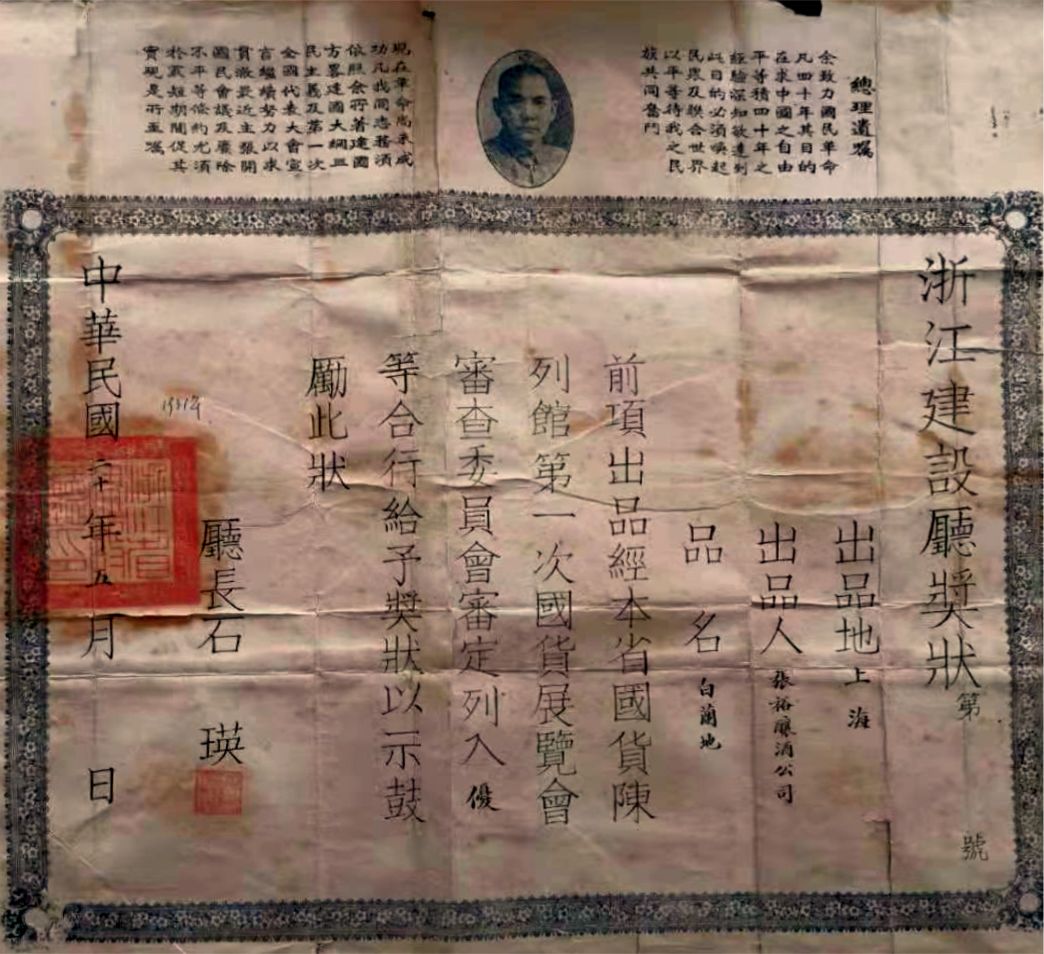 總理遺囑
余致力國民革命
凡四十年其目的
在求中國之自由
平等積四十年之
經驗深知欲達到
此目的必須喚起
民衆及聯合世界
以平等待我之民
族共同奮鬥
現在革命尚未成
功凡我同志務須
依照余所著建國
方畧建國大綱三
民主義及第一次
全國代表大會宣
言繼續努力以求
貫澈最近主張開
國民會議及廢除
不平等條約尤須
於最短期間促其
實現是所至囑
浙江建設廳獎狀 第 號
出品地 上海
出品人 張裕釀酒公司
品名 白蘭地
前項出品經本省國貨陳
列館第一次國貨展覽會
審查委員會審定列入優
等合行給予獎狀以示鼓
勵此狀
廳長石 瑛
1931年
中華民國二十年五月 日